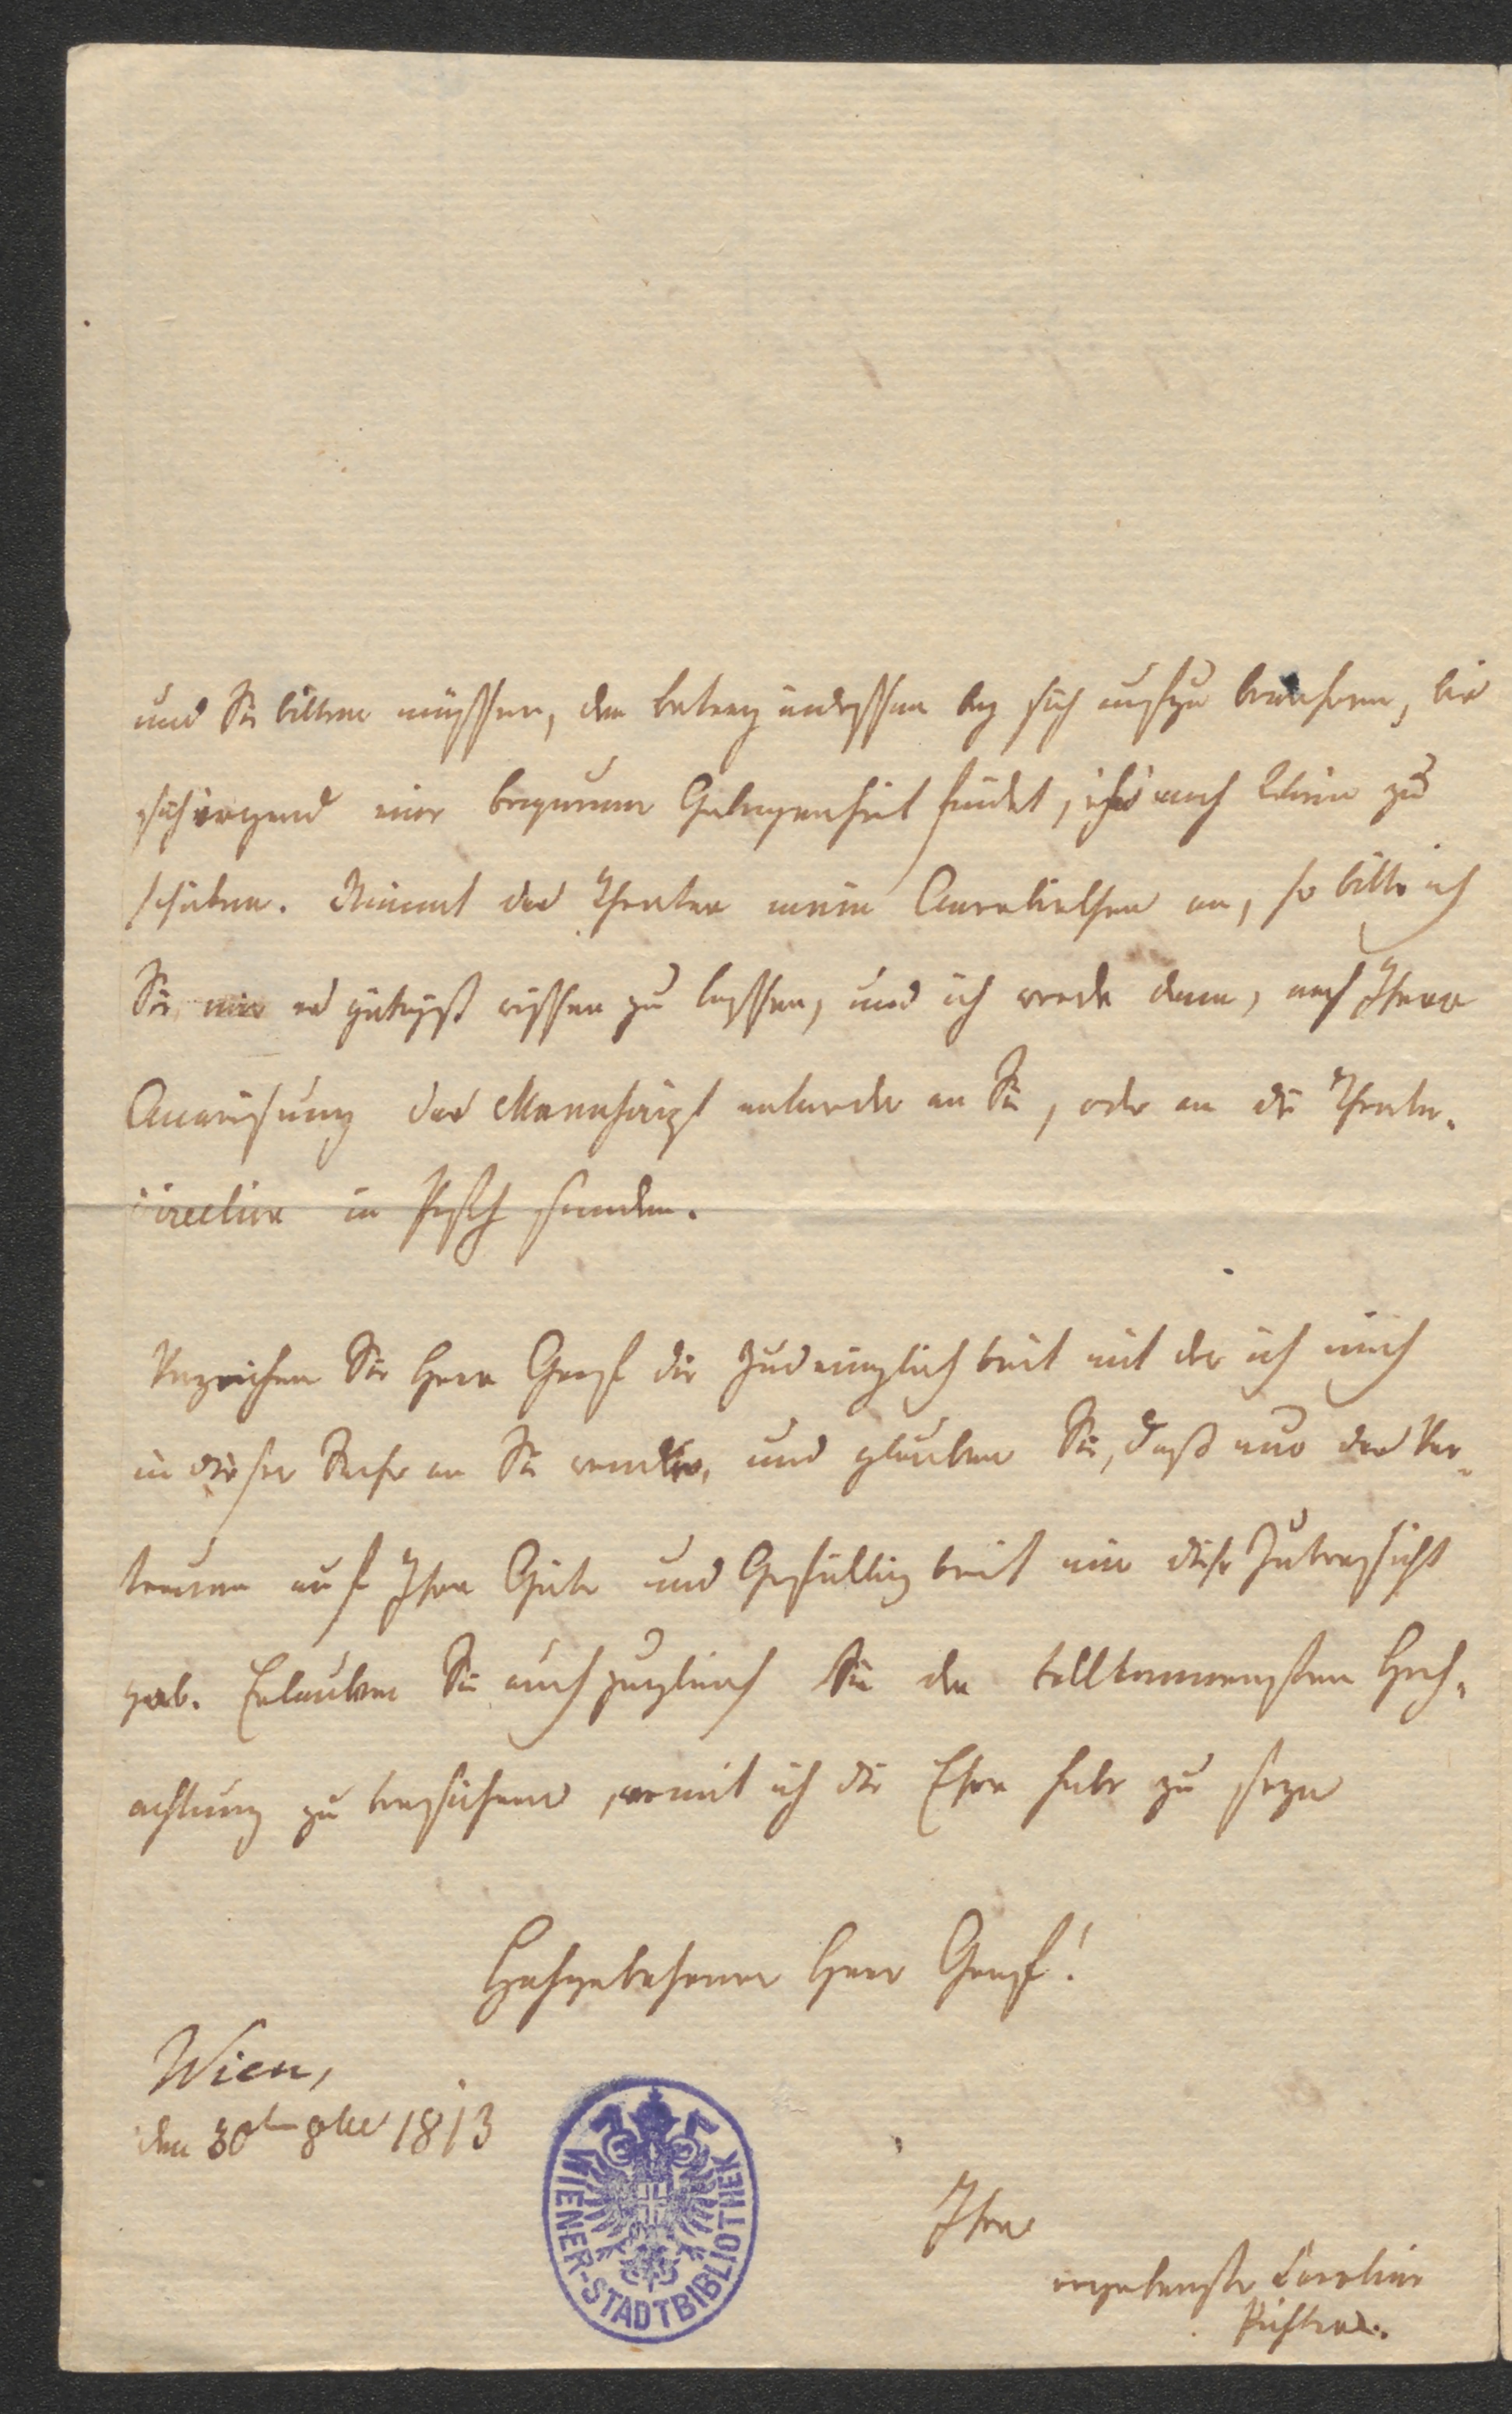 und Sie bitten müssen, den betrag indessen bey sich aufzu bewahren, bis
sich irgend eine bequeme Gelegenheit findet, ihn nach Wien zu
schicken. Nimmt das Theater mein Anerbiethen an, so bitte ich
Sie mir es gütigst wissen zu lassen, und ich werde dann, nach Ihrer
Anweisung das Manuscript entweder an Sie, oder an die Theater-
direction in Pesth senden.
Verzeihen Sie Herr Graf die Zudringlichkeit mit der ich mich
in dieser Sache an Sie wende, und glauben Sie, daß nur das Ver-
trauen auf Ihre Güte und Gefälligkeit mir diese Zuversicht
gab. Erlauben Sie auch zugleich Sie der vollkommensten Hoch-
achtung zu versichern, womit ich die Ehre habe zu seyn
Hochgebohrner Herr Graf!
Wien,
den 30ten 8ber 1813
WIENER-STADTBIBLIOTHEK
Ihre
ergebenste Caroline
Pichler.